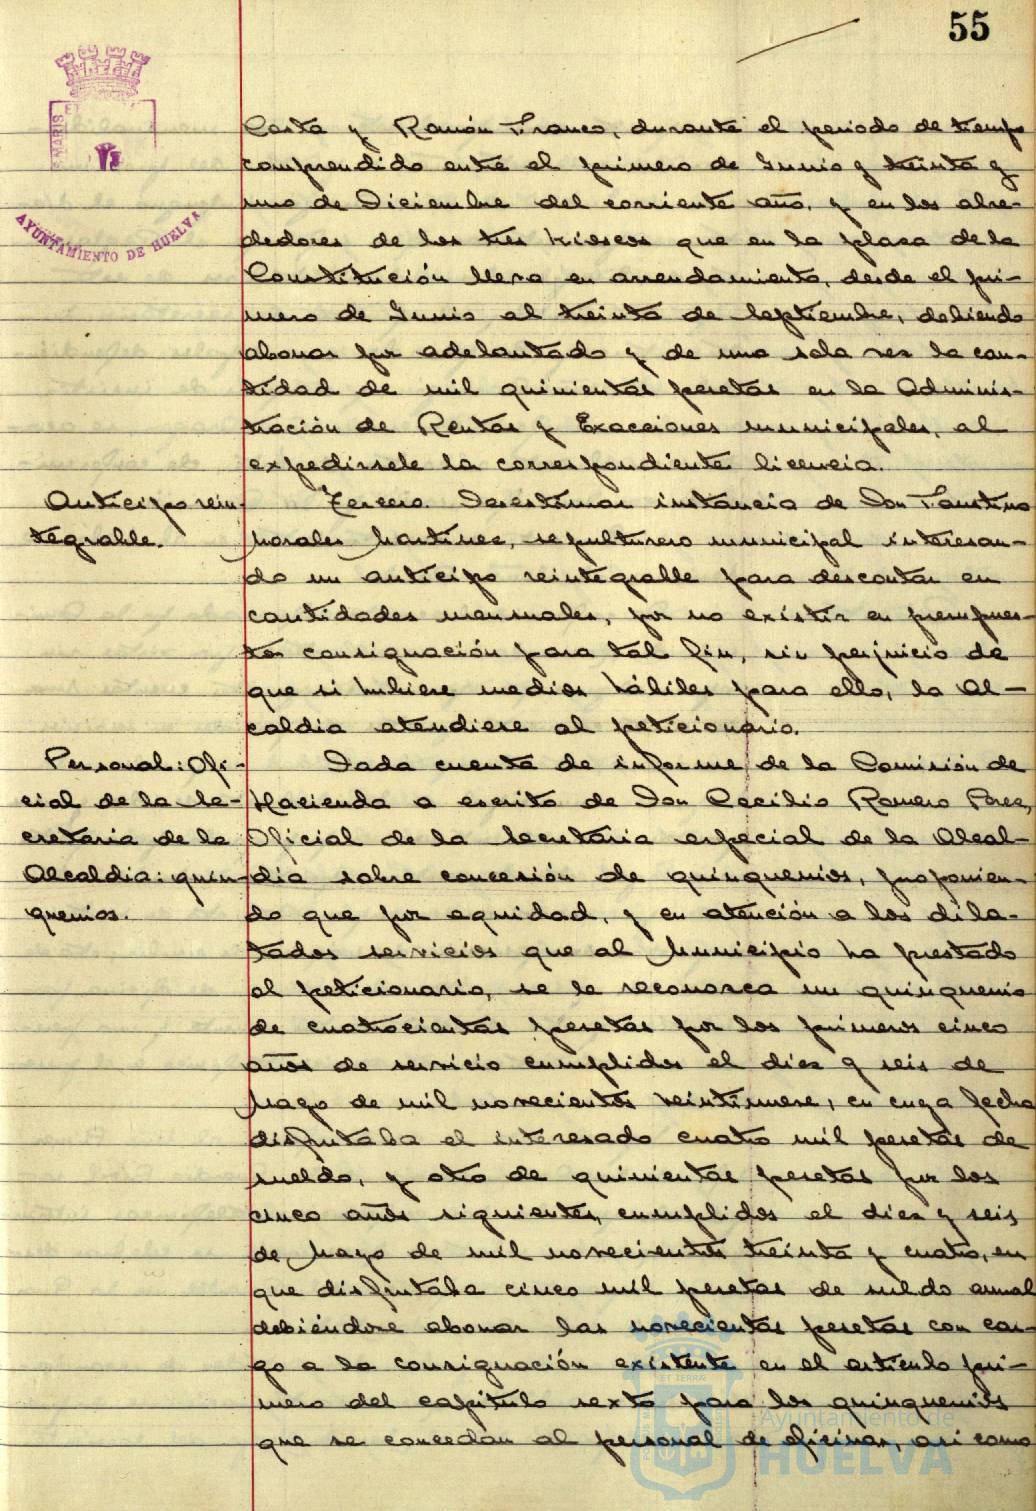 55
MARIS ET
AYUNTAMIENTO DE HUELVA
Costa y Ramón Franco, durante el periodo de tiempo
comprendido entre el primero de Junio y treinta y
uno de Diciembre del corriente año, y en los alre-
dedores de los tres kioscos que en la plaza de la
Constitución lleva en arrendamiento, desde el pri-
mero de Junio al treinta de Septiembre, debiendo
abonar por adelantado y de una sola vez la can-
tidad de mil quinientas pesetas en la Adminis-
tración de Rentas y Exacciones municipales, al
expedírsele la correspondiente licencia.
Anticipo rein-
tegrable.
Tercero. Desestimar instancia de Don Faustino
Morales Martínez, sepulturero municipal interesan-
do un anticipo reintegrable para descontar en
cantidades mensuales, por no existir en presupues-
to consignación para tal fin, sin perjuicio de
que si hubiese medios hábiles para ello, la Al-
caldia atendiese al peticionario.
Personal: Ofi-
cial de la Se-
cretaria de la
Alcaldia: quin-
quenios.
Dada cuenta de informe de la Comisión de
Hacienda a escrito de Don Cecilio Romero Perez,
Oficial de la Secretaria especial de la Alcal-
dia sobre concesión de quinquenios, proponien-
do que por equidad, y en atención a los dila-
tados servicios que al Municipio ha prestado
el peticionario, se le reconozca un quinquenio
de cuatrocientas pesetas por los primeros cinco
años de servicio cumplidos el diez y seis de
Mayo de mil novecientos veintinueve, en cuya fecha
disfrutaba el interesado cuatro mil pesetas de
sueldo, y otro de quinientas pesetas por los
cinco años siguientes, cumplidos el diez y seis
de Mayo de mil novecientos treinta y cuatro, en
que disfrutaba cinco mil pesetas de sueldo anual
debiéndose abonar las novecientas pesetas con car-
go a la consignación existente en el artículo pri-
mero del capítulo sexto para los quinquenios
que se concedan al personal de oficinas, asi como
Ayuntamiento de
HUELVA